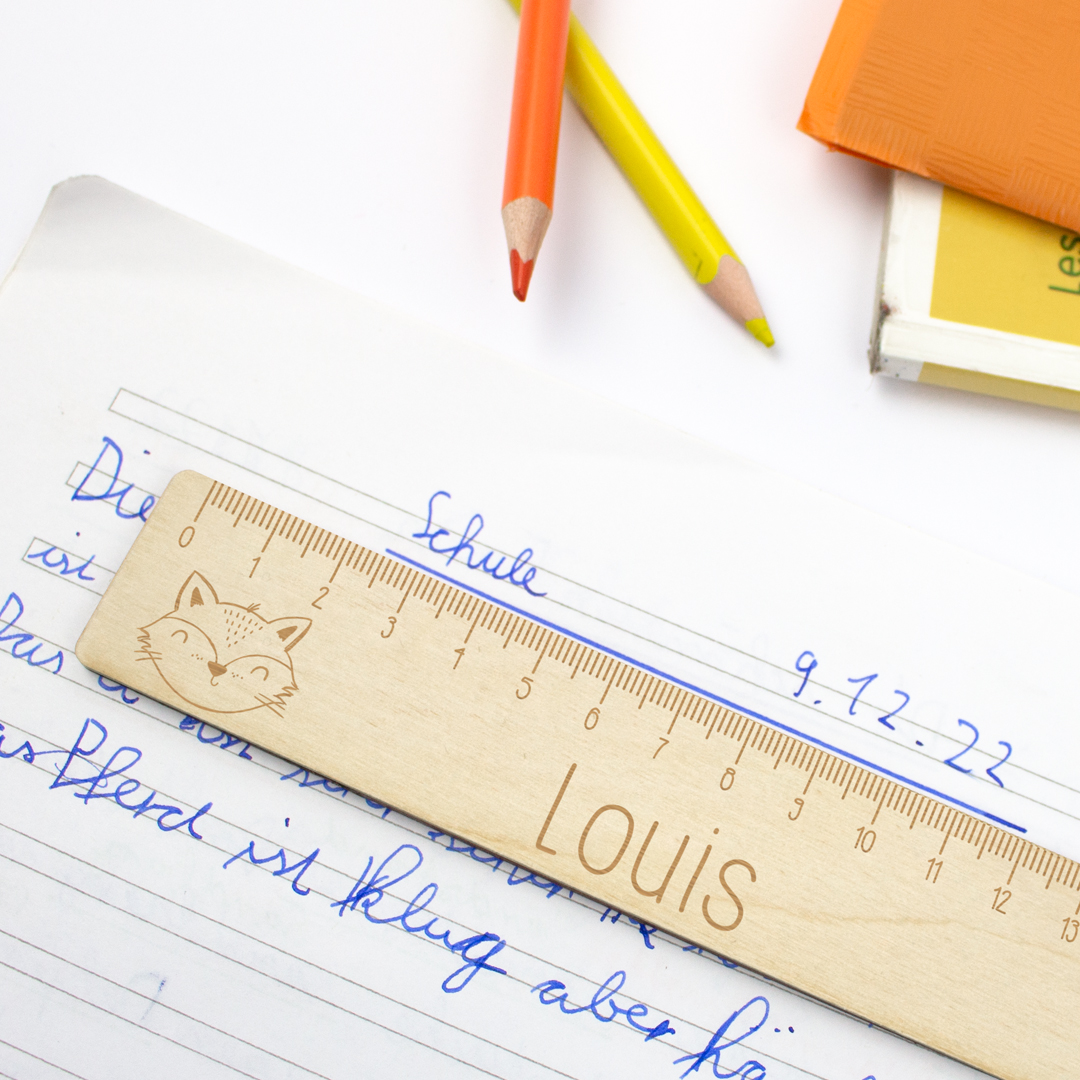 Les
Schule
9.12.22
Die
ist
Das
0 1 2 3 4 5 6 7 8 9 10 11 12 13
Louis
as Pferd ist klug aber hä